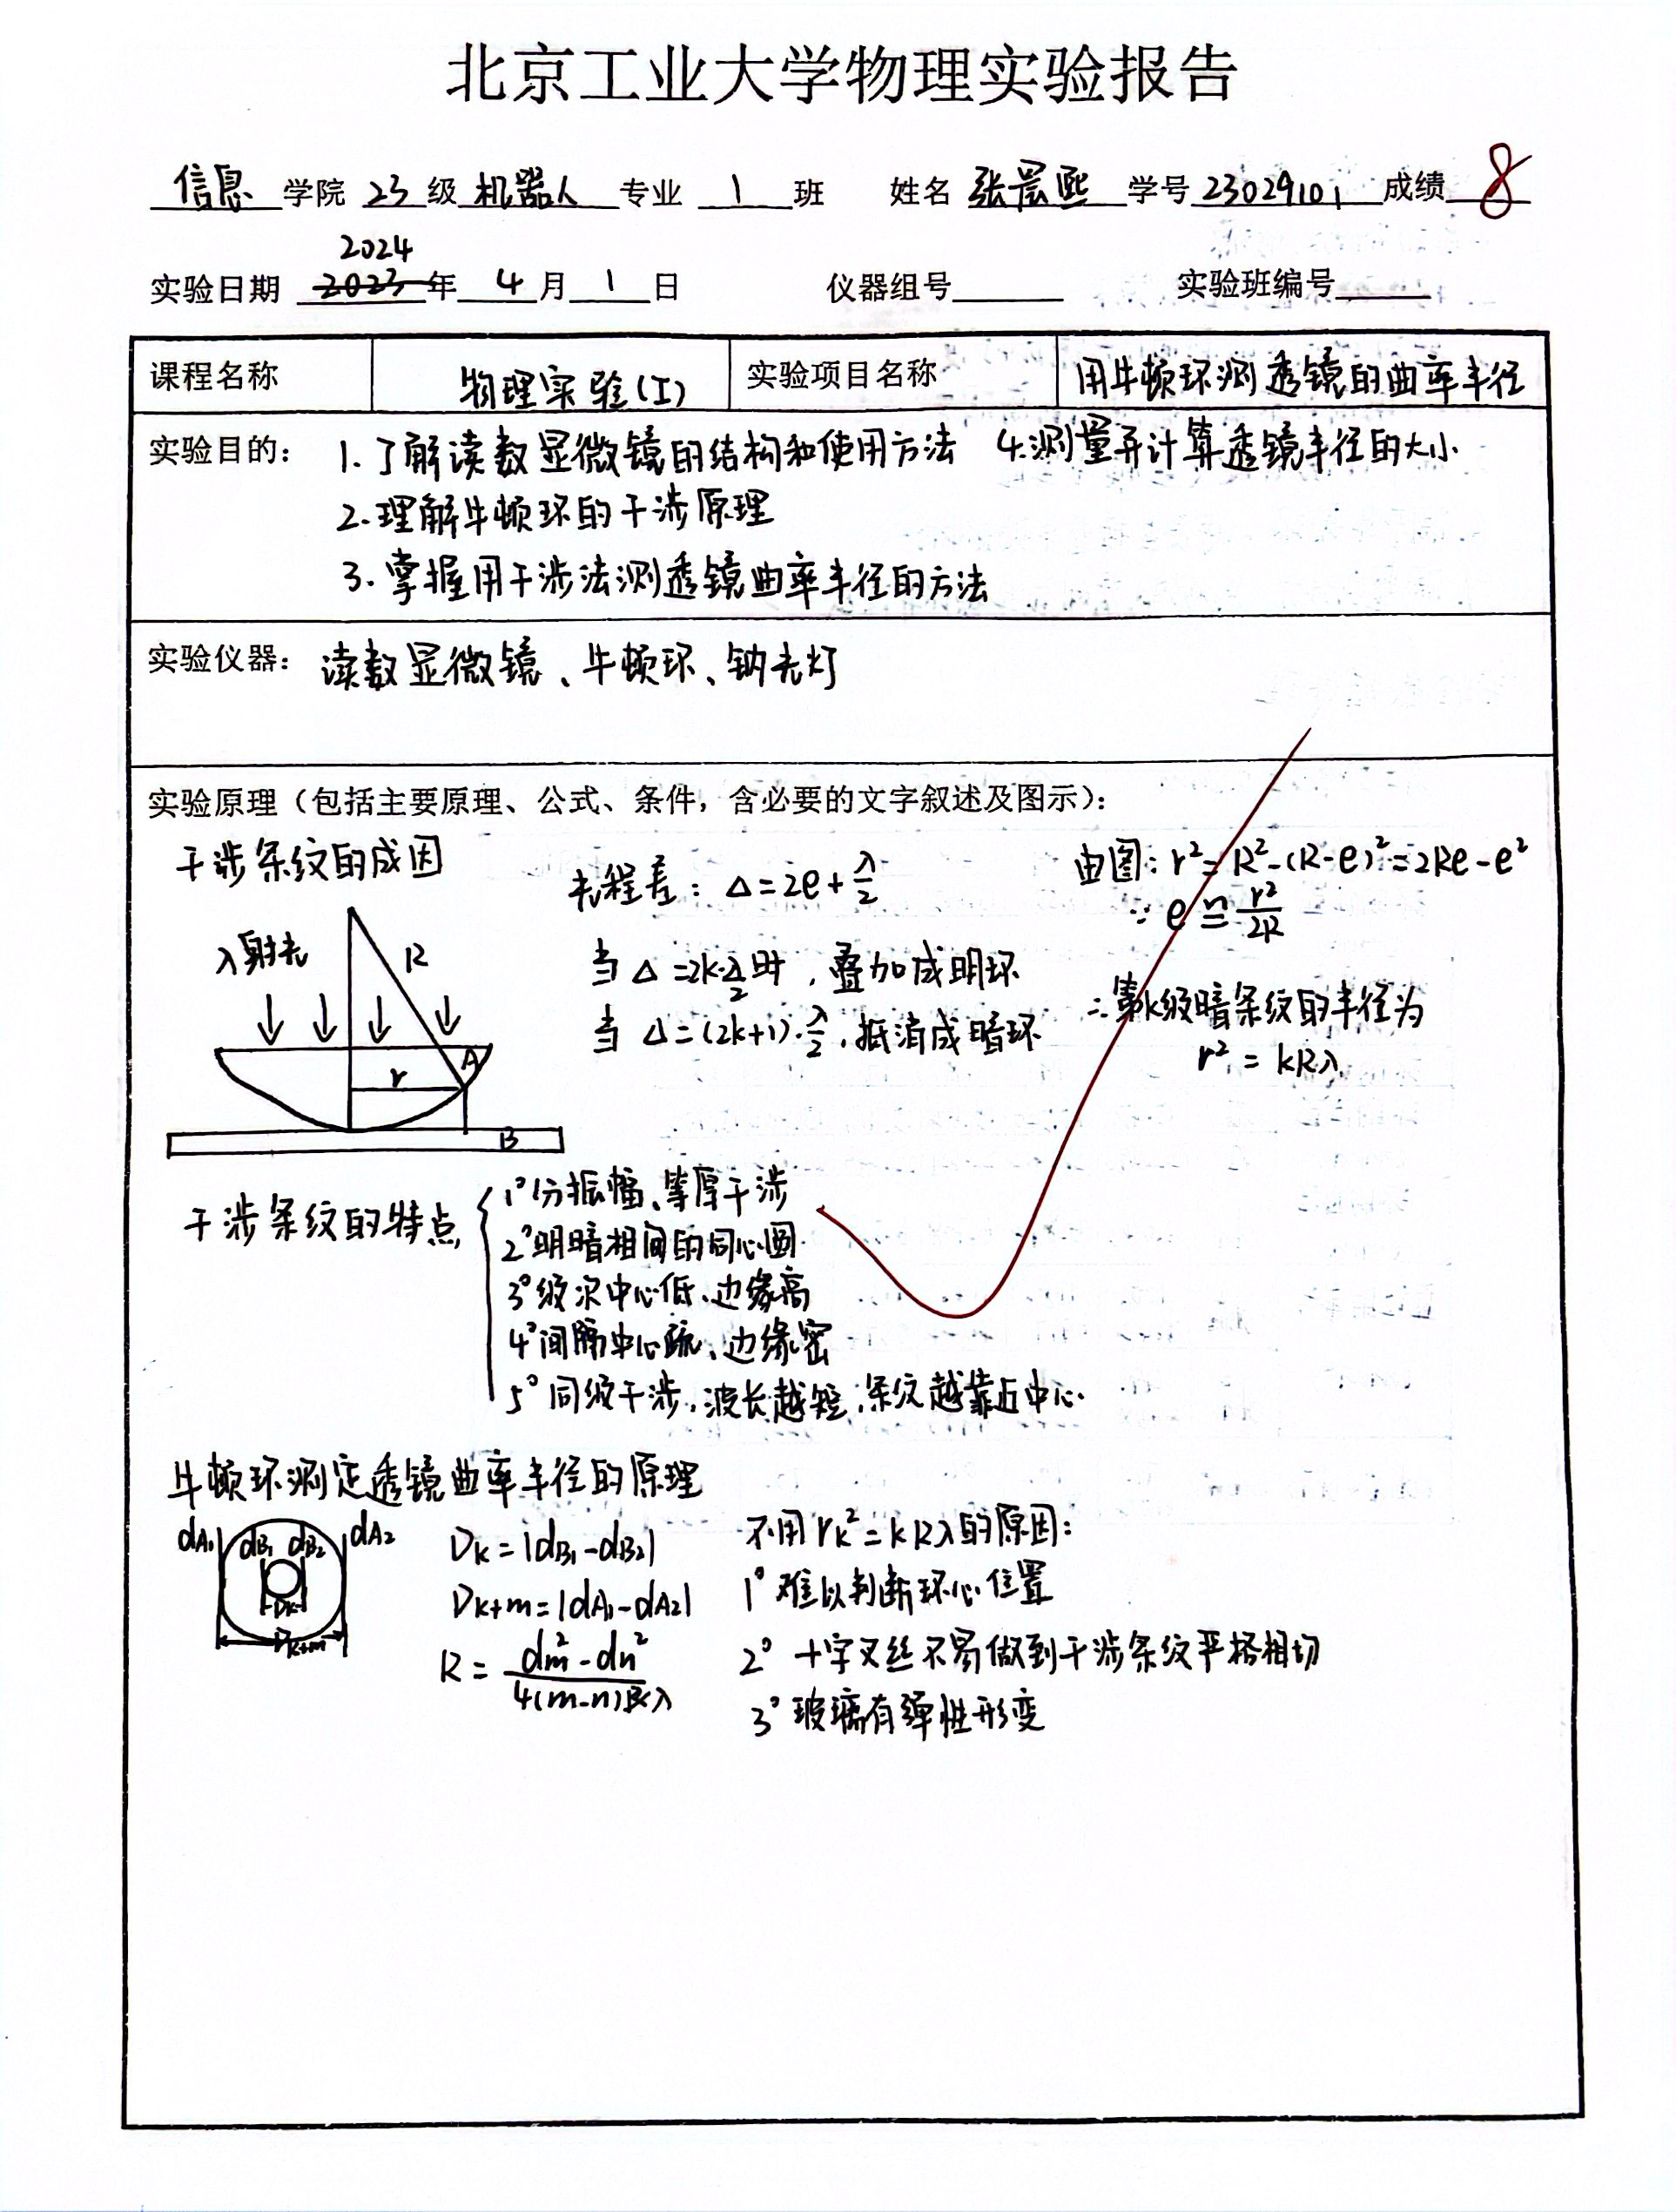 北京工业大学物理实验报告
信息学院 23级 机器人专业 1班 姓名 张宸熙 学号 23029101 成绩 8
2024
实验日期 2023年 4月 1日 仪器组号 实验班编号
课程名称 物理实验(I) 实验项目名称 用牛顿环测透镜的曲率半径
实验目的: 1.了解读数显微镜的结构和使用方法 4.测量并计算透镜半径的大小
2.理解牛顿环的干涉原理
3.掌握用干涉法测透镜曲率半径的方法
实验仪器: 读数显微镜、牛顿环、钠光灯
实验原理(包括主要原理、公式、条件,含必要的文字叙述及图示):
干涉条纹的成因
入射光 R
r A
B
光程差: Δ=2e+λ/2
当 Δ=2k·λ/2时,叠加成明环
当 Δ=(2k+1)·λ/2,抵消成暗环
由图: r²=R²-(R-e)²=2Re-e²
∵ e≌r²/2R
∴第k级暗条纹的半径为
r²=kRλ
干涉条纹的特点
1°分振幅、等厚干涉
2°明暗相间的同心圆
3°级次中心低、边缘高
4°间隔中心疏、边缘密
5°同级干涉,波长越短,条纹越靠近中心
牛顿环测定透镜曲率半径的原理
dA₁ dB₁ dB₂ dA₂
Dk
Dk+m
Dk=|dB₁-dB₂|
Dk+m=|dA₁-dA₂|
R=(dm²-dn²)/4(m-n)λ
不用rk²=kRλ的原因:
1°难以判断环心位置
2°十字叉丝不易做到干涉条纹严格相切
3°玻璃有弹性形变